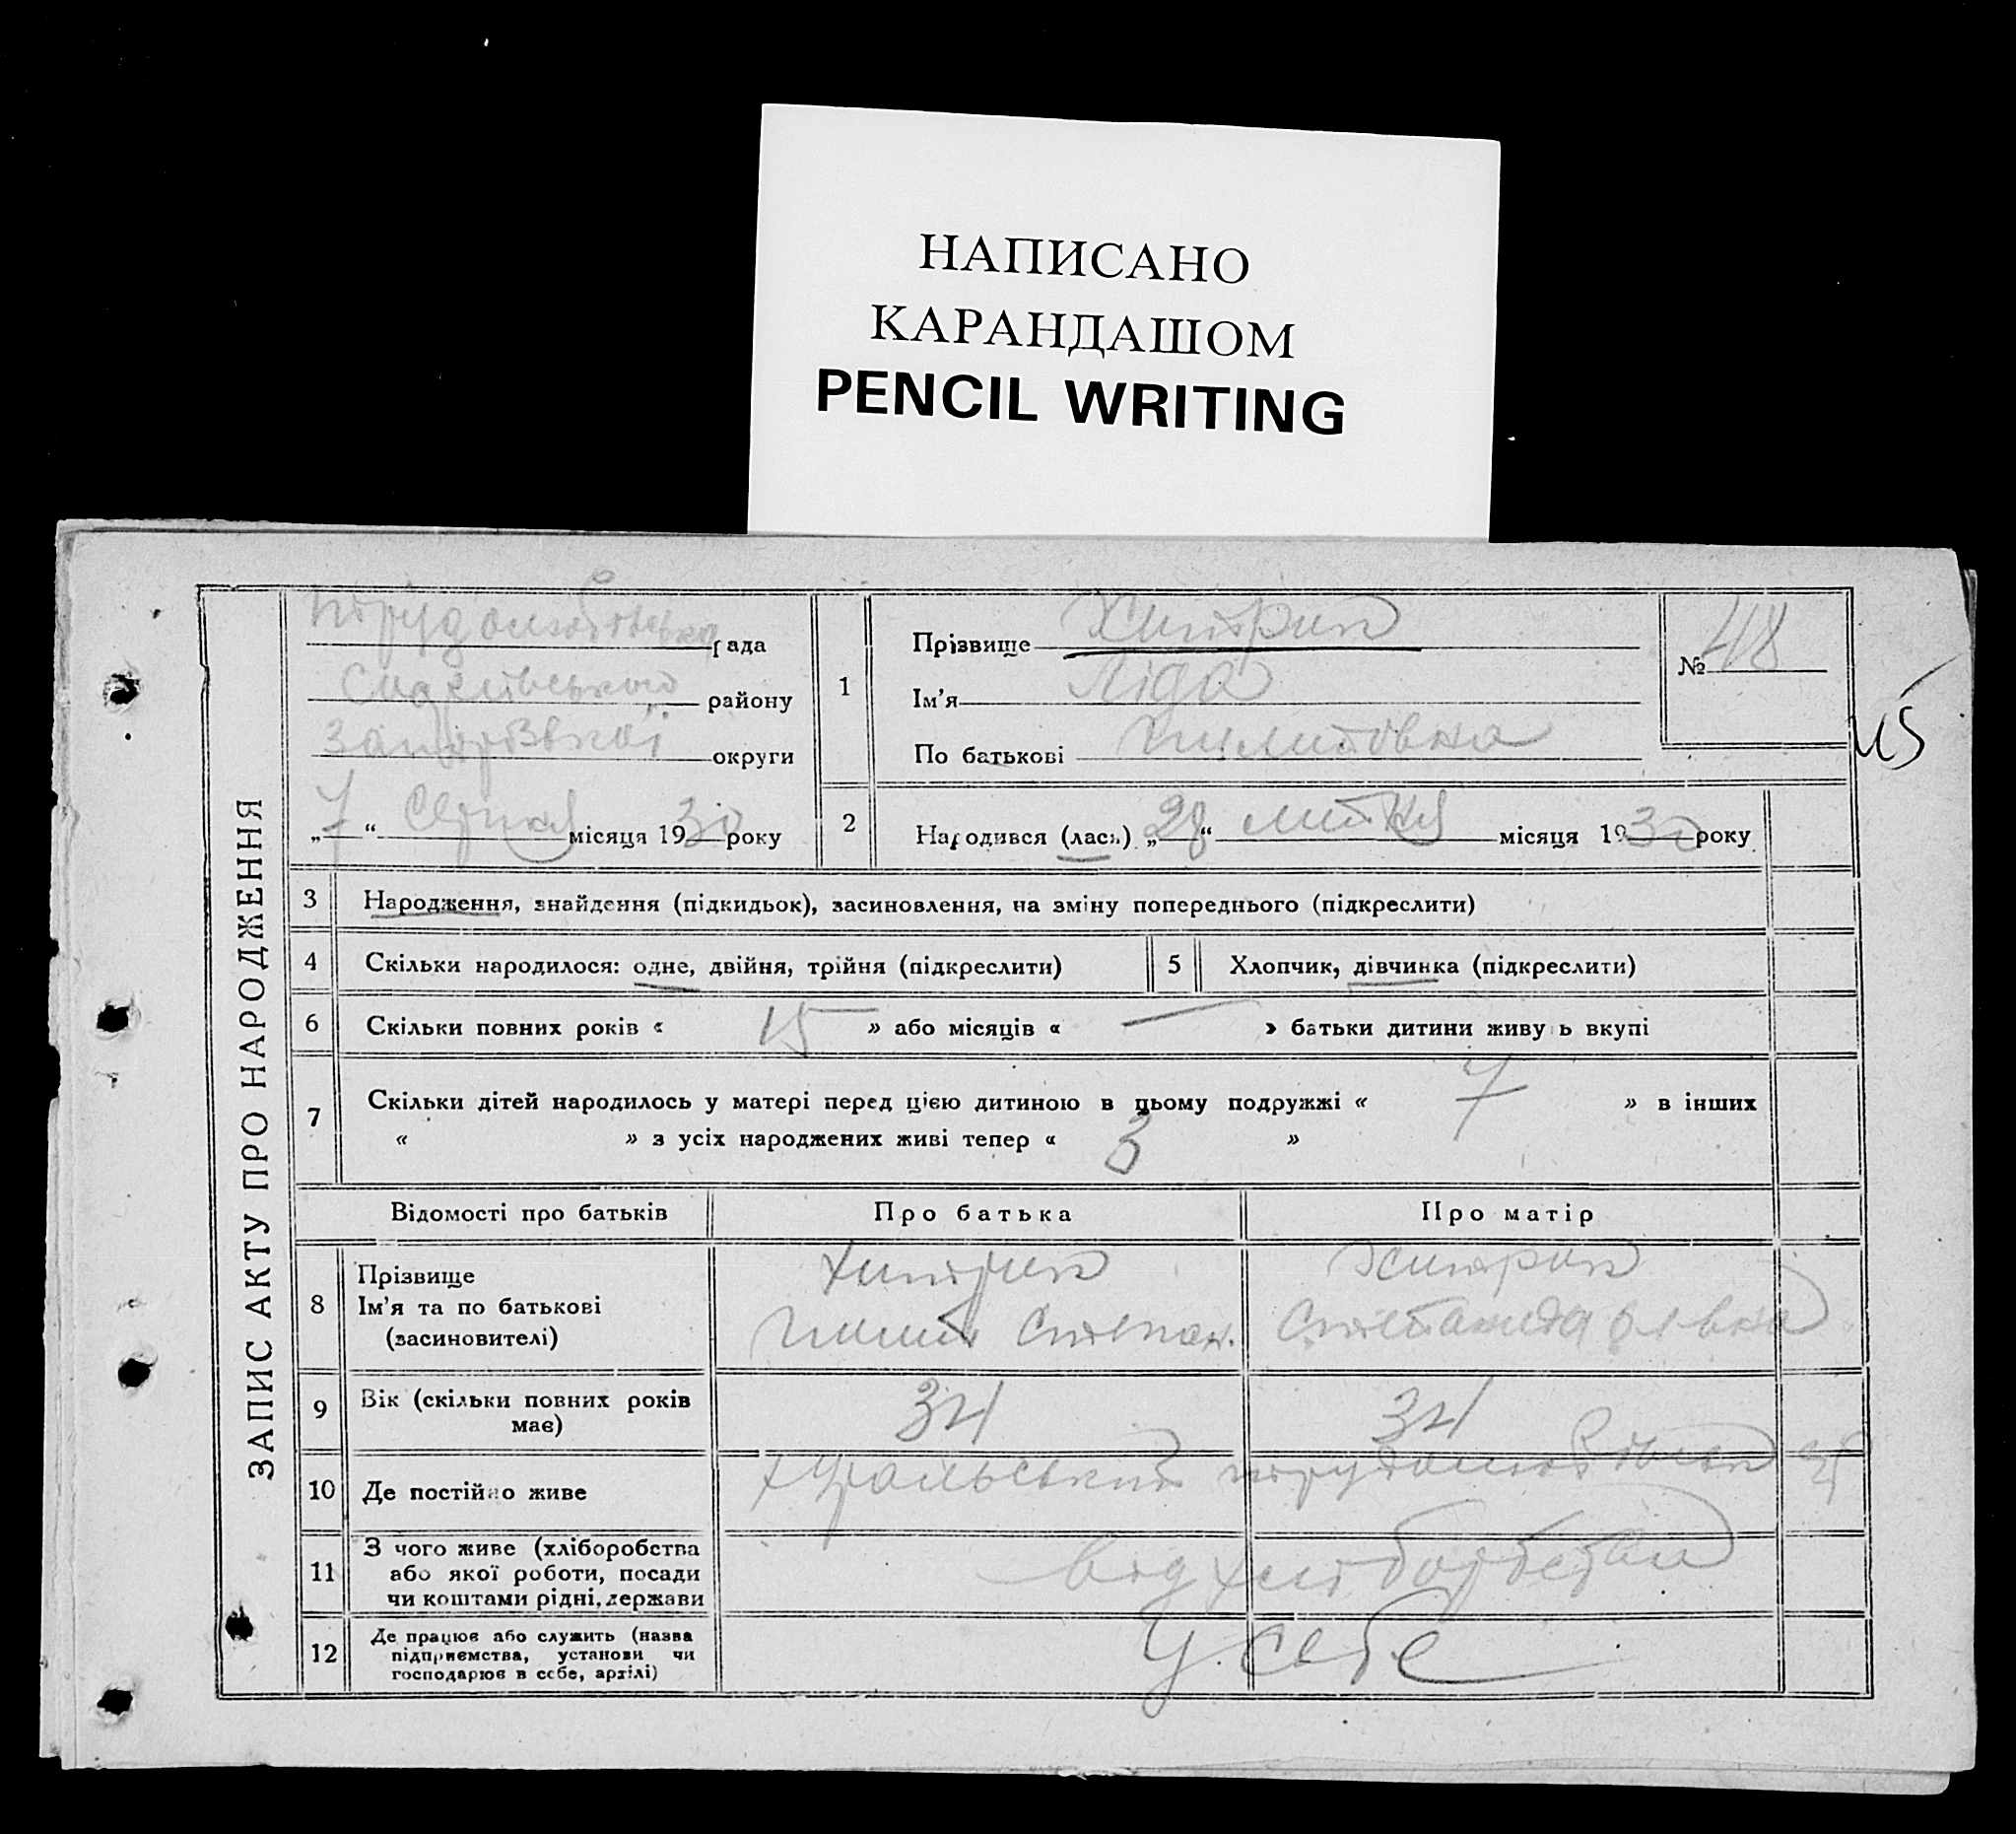 НАПИСАНО
КАРАНДАШОМ
PENCIL WRITING
ЗАПИС АКТУ ПРО НАРОДЖЕННЯ
рада
району
округи
„7“ Серпня місяця 1930 року
1
Прізвище Хитрик
Ім'я Ліда
По батькові
№ 48
45
2
Народився (лась) „28“ липня місяця 1930 року
3 Народження, знайдення (підкидьок), засиновлення, на зміну попереднього (підкреслити)
4 Скільки народилося: одне, двійня, трійня (підкреслити)
5 Хлопчик, дівчинка (підкреслити)
6 Скільки повних років « 15 » або місяців « — » батьки дитини живуть вкупі
7 Скільки дітей народилось у матері перед цією дитиною в цьому подружжі « 7 » в інших
« » з усіх народжених живі тепер « 3 »
Відомості про батьків Про батька Про матір
8 Прізвище
Ім'я та по батькові
(засиновителі)
Хитрик
Степан.
Хитрик
9 Вік (скільки повних років
має)
34
34
10 Де постійно живе
11 З чого живе (хліборобства
або якої роботи, посади
чи коштами рідні, держави
від
12 Де працює або служить (назва
підприємства, установи чи
господарює в себе, артілі)
У себе